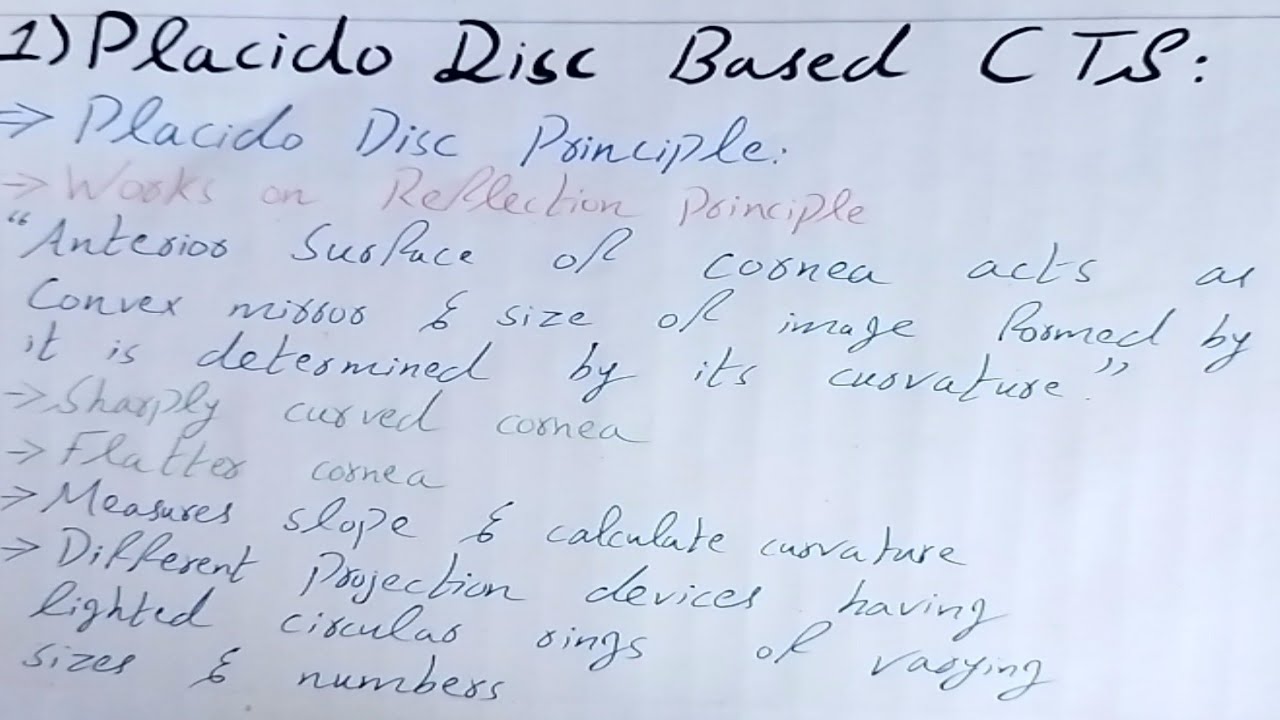 1) Placido Disc Based CTS:
⇒ Placido Disc Principle:
→ Works on Reflection Principle
"Anterior Surface of cornea acts as
Convex mirror & size of image formed by
it is determined by its curvature."
→ Sharply curved cornea
→ Flatter cornea
⇒ Measures slope & calculate curvature
⇒ Different Projection devices having
lighted circular rings of varying
sizes & numbers